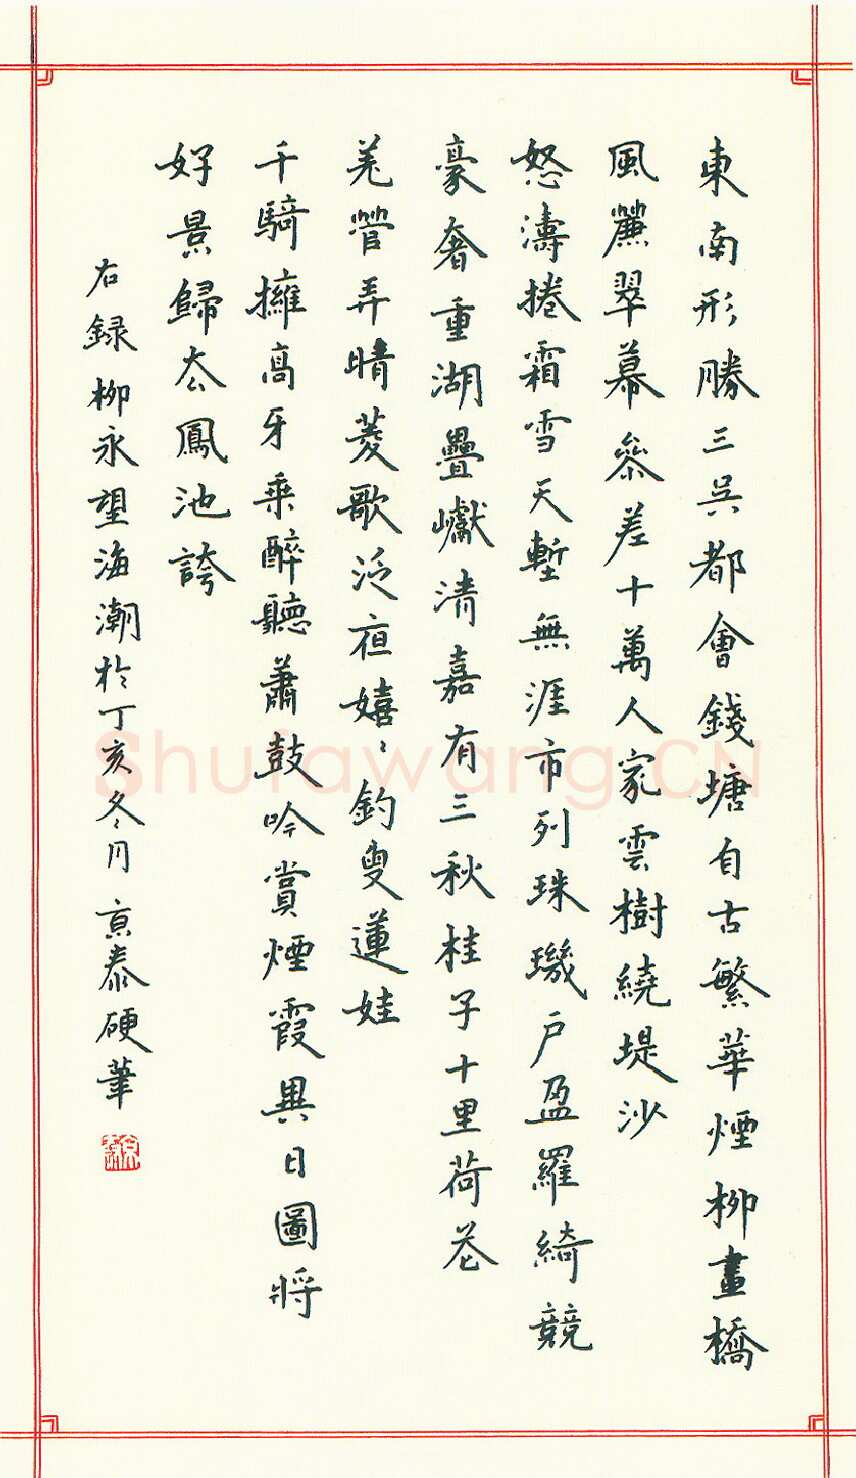 東南形勝三吳都會錢塘自古繁華煙柳畫橋
風簾翠幕參差十萬人家雲樹繞堤沙
怒濤捲霜雪天塹無涯市列珠璣戶盈羅綺競
豪奢重湖疊巘清嘉有三秋桂子十里荷花
羌管弄晴菱歌泛夜嬉〻釣叟蓮娃
千騎擁高牙乘醉聽蕭鼓吟賞煙霞異日圖將
好景歸去鳳池誇
右錄柳永望海潮於丁亥冬月京泰硬筆
Shufawang.CN